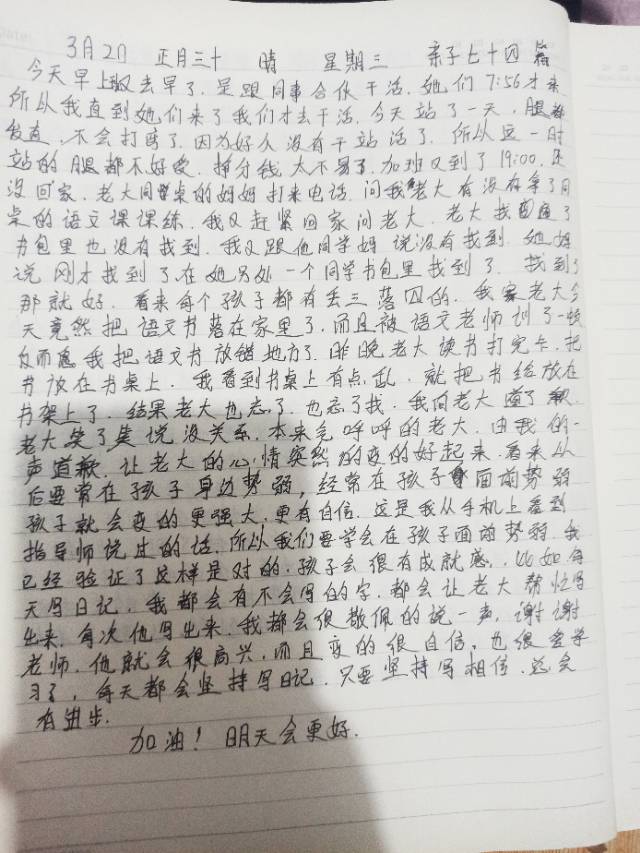 3月2日 正月三十 晴 星期三 亲子七十四篇
今天早上又去早了,是跟同事合伙干活,她们7:56才来
所以我直到她们来了我们才去干活,今天站了一天,腿都
发直,不会打弯了,因为好久没有干站活了,所以这一时
站的腿都不好受,挣分钱太不易了,加班又到了19:00,还
没回家,老大同桌的妈妈打来电话,问我老大有没有拿了同
桌的语文课课练,我又赶紧回家问老大,老大找遍了
书包里也没有找到,我又跟他同学妈说没有找到,她妈
说刚才找到了,在她另处一个同学书包里找到了,找到了
那就好,看来每个孩子都有丢三落四的,我家老大今
天竟然把语文书落在家里了,而且被语文老师训了一顿
反而怨我把语文书放错地方了,昨晚老大读书打完卡,把
书放在书桌上,我看到书桌上有点乱,就把书给放在
书架上了,结果老大也忘了,也忘了找,我向老大道了歉
老大笑了笑说没关系,本来气呼呼的老大,由我的一
声道歉,让老大的心情突然的变的好起来,看来从
后要常在孩子身边势弱,经常在孩子面前势弱
孩子就会变的更强大,更有自信,这是我从手机上看到
指导师说过的话,所以我们要学会在孩子面前势弱,我
已经验证了这样是对的,孩子会很有成就感,比如每
天写日记,我都会有不会写的字,都会让老大帮忙写
出来,每次他写出来,我都会很敬佩的说一声,谢谢
老师,他就会很高兴,而且变的很自信,也很会学
习了,每天都会坚持写日记,只要坚持写相信,总会
有进步.
加油!明天会更好.